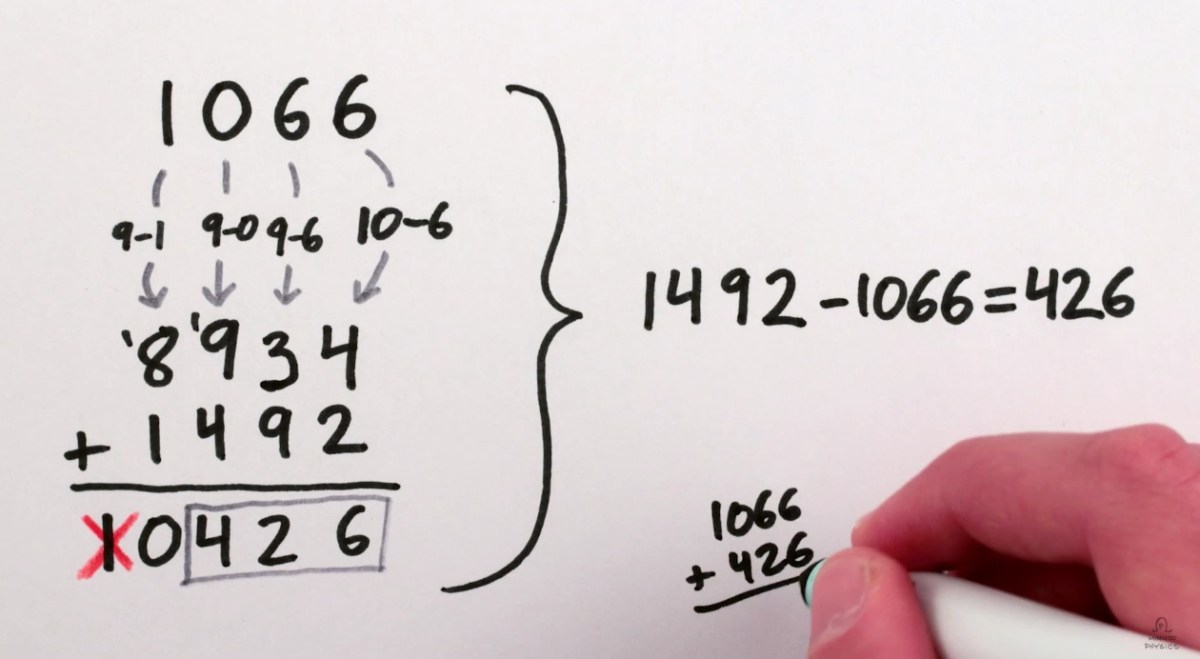 1066
9-1 9-0 9-6 10-6
'8'934
+ 1492
10426
1492-1066=426
1066
+ 426
PHYSICS